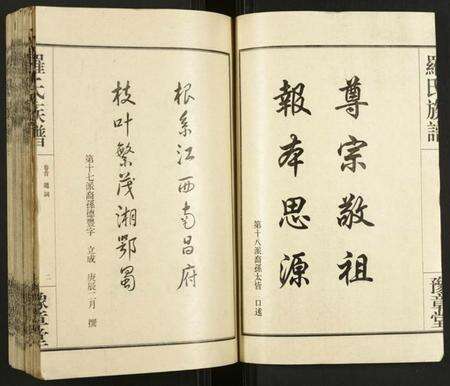 羅氏族譜
尊宗敬祖
報本思源
第十八派裔孫太皆 口述
豫章堂
根系江西南昌府
枝叶繁茂湘鄂蜀
第十七派裔孫德豐字 立成 庚辰二月 撰
羅氏族譜
卷首 題詞
二
豫章堂